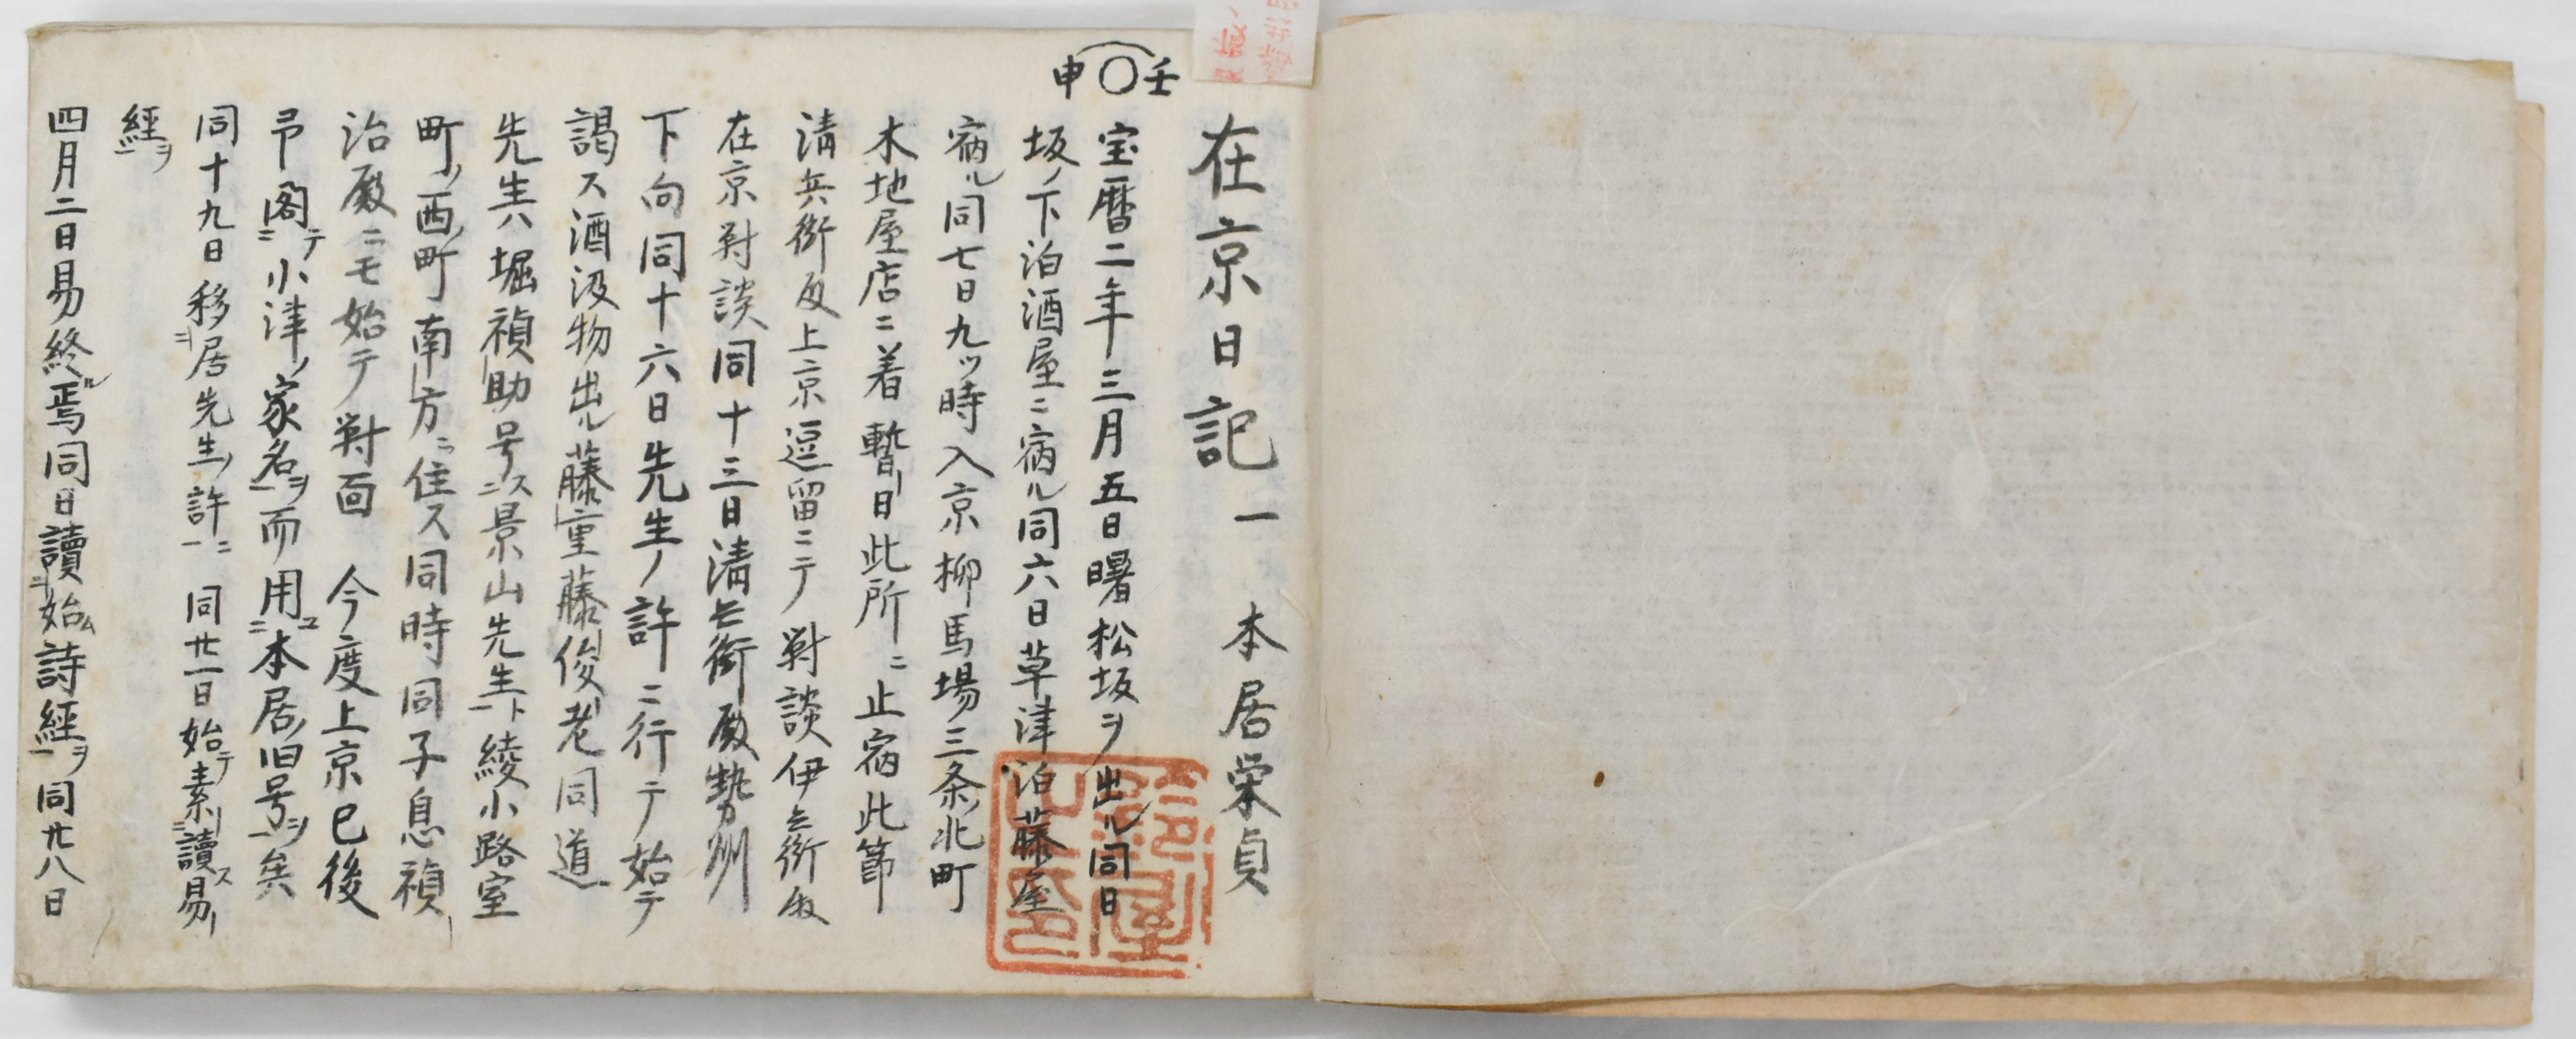 壬〇申
在京日記一　本居栄貞
宝暦二年三月五日曙松坂ヲ出ル同日
坂ノ下泊酒屋ニ宿ル同六日草津泊藤屋
宿ル同七日九ツ時入京柳馬場三条北町
木地屋店ニ着暫日此所ニ止宿此節
清兵衛殿上京逗留ニテ對談伊兵衛殿
在京對談同十三日清兵衛殿勢州
下向同十六日先生ノ許ニ行テ始テ
謁ス酒汲物出ル藤重藤俊老同道
先生ハ堀禎助号ス二景山先生ト一綾小路室
町ノ西ノ町南方ニ住ス同時同子息禎
治殿ニモ始テ對面　今度上京已後
弔二閣テ小津ノ家名ヲ一而用ユ二本居ノ旧号ヲ一矣
同十九日移二居先生ノ許ニ一同廿一日始テ素二讀ス易
經ヲ一
四月二日易終ル焉同日讀二始ム詩經ヲ一同廿八日